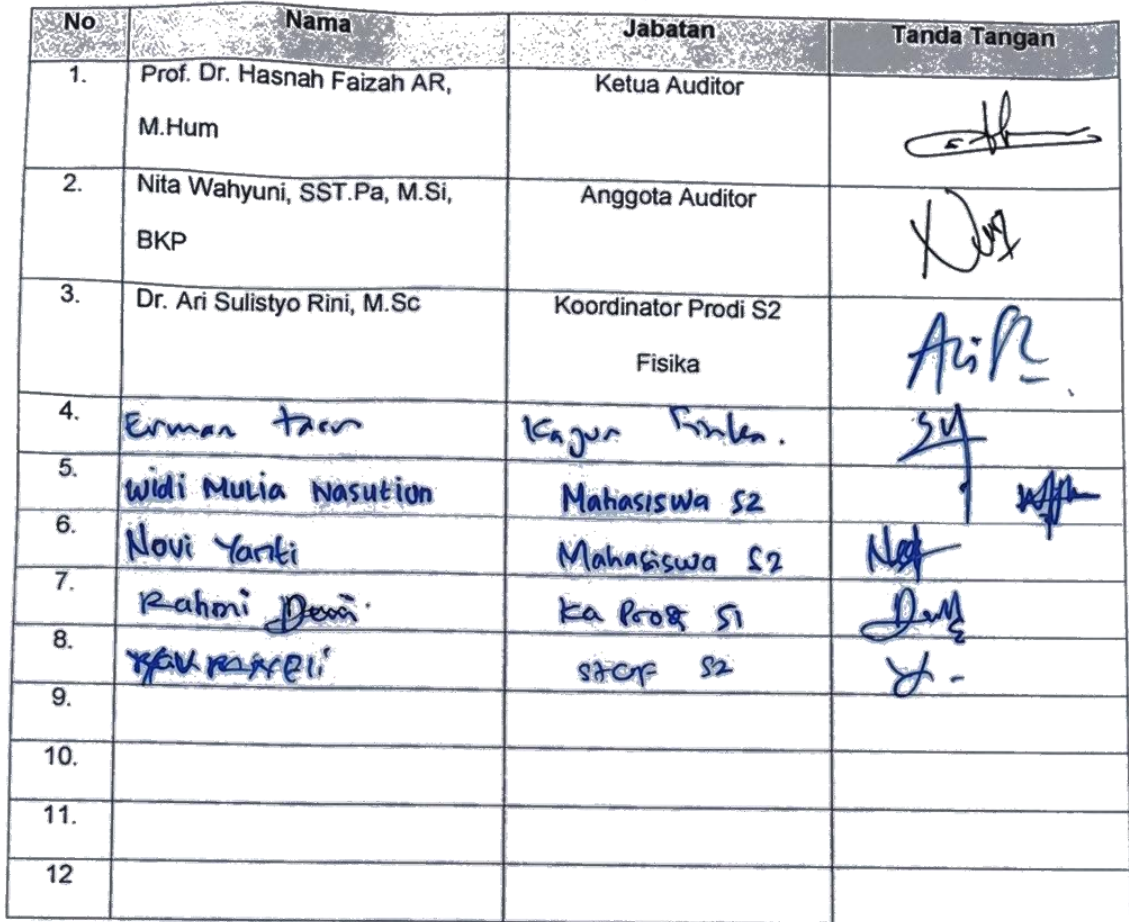 No Nama Jabatan Tanda Tangan
1. Prof. Dr. Hasnah Faizah AR, Ketua Auditor
M.Hum
2. Nita Wahyuni, SST.Pa, M.Si, Anggota Auditor
BKP
3. Dr. Ari Sulistyo Rini, M.Sc Koordinator Prodi S2
Fisika
4. Erman Kajur
5. Widi Mulia Nasution Mahasiswa S2
6. Novi Yanti Mahasiswa S2
7. Rahmi Dewi Ka Prodi S1
8. Staf S2
9.
10.
11.
12